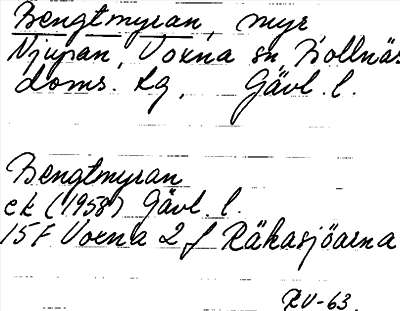 Bengtmyran, myr
Njupan, Voxna sn, Bollnäs
doms. sg, Gävl. l.
Bengtmyran
ek (1958) Gävl. l.
15F Voxna 2 f Räkasjöarna
RV-63.